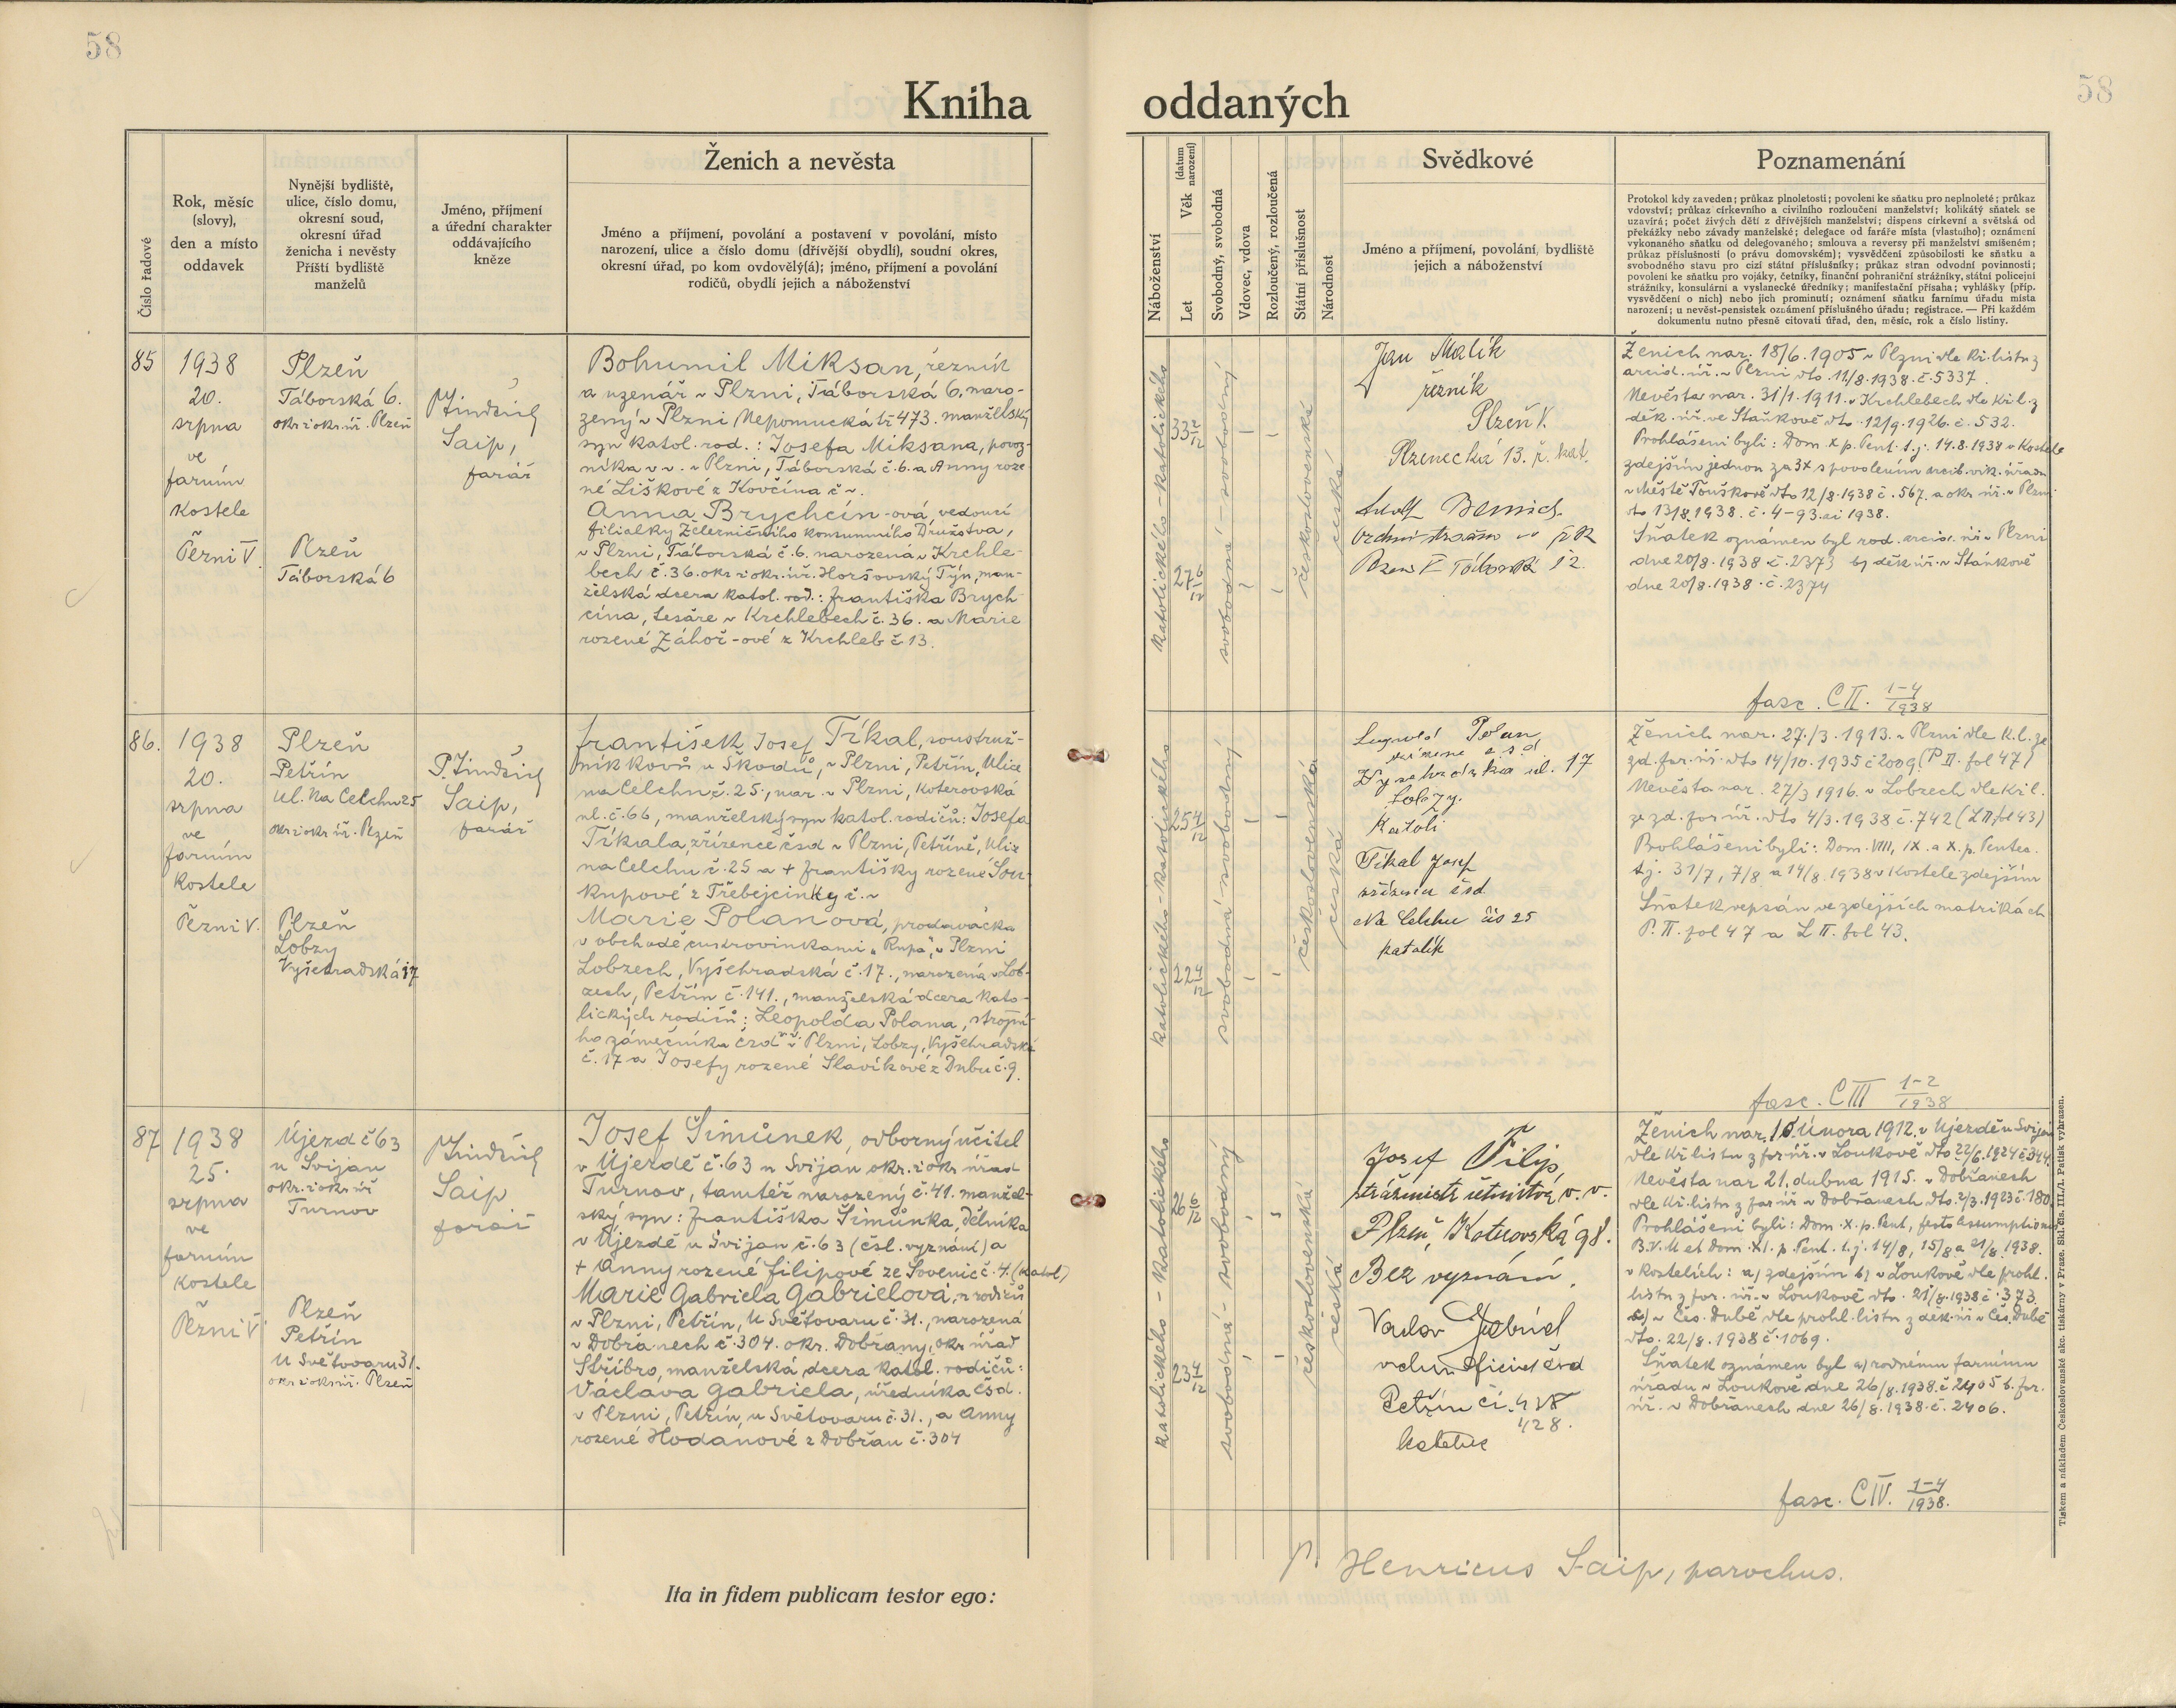 58
58
Kniha oddaných
Číslo řadové
Rok, měsíc
(slovy),
den a místo
oddavek
Nynější bydliště,
ulice, číslo domu,
okresní soud,
okresní úřad
ženicha i nevěsty
Příští bydliště
manželů
Jméno, příjmení
a úřední charakter
oddávajícího
kněze
Ženich a nevěsta
Jméno a příjmení, povolání a postavení v povolání, místo
narození, ulice a číslo domu (dřívější obydlí), soudní okres,
okresní úřad, po kom ovdovělý(á); jméno, příjmení a povolání
rodičů, obydlí jejich a náboženství
Náboženství
Let
Věk (datum narození)
Svobodný, svobodná
Vdovec, vdova
Rozloučený, rozloučená
Státní příslušnost
Národnost
Svědkové
Jméno a příjmení, povolání, bydliště
jejich a náboženství
Poznamenání
Protokol kdy zaveden; průkaz plnoletosti; povolení ke sňatku pro neplnoleté; průkaz
vdovství; průkaz církevního a civilního rozloučení manželství; kolikátý sňatek se
uzavírá; počet živých dětí z dřívějších manželství; dispens církevní a světská od
překážky nebo závady manželské; delegace od faráře místa (vlastního); oznámení
vykonaného sňatku od delegovaného; smlouva a reversy při manželství smíšeném;
průkaz příslušnosti (o právu domovském); vysvědčení způsobilosti ke sňatku a
svobodného stavu pro cizí státní příslušníky; průkaz stran odvodní povinnosti;
povolení ke sňatku pro vojáky, četníky, finanční pohraniční strážníky, státní policejní
strážníky, konsulární a vyslanecké úředníky; manifestační přísaha; vyhlášky (příp.
vysvědčení o nich) nebo jich prominutí; oznámení sňatku farnímu úřadu místa
narození; u nevěst-pensistek oznámení příslušného úřadu; registrace. — Při každém
dokumentu nutno přesně citovati úřad, den, měsíc, rok a číslo listiny.
85
1938
20.
srpna
ve
farním
kostele
Plzni V.
Plzeň
Táborská 6.
okr. i okr. úř. Plzeň
Plzeň
Táborská 6
P. Jindřich
Saip,
farář
Bohumil Miksan, řezník
a uzenář v Plzni, Táborská 6, naro-
zený v Plzni, Nepomucká tř. 473. manželský
syn katol. rod.: Josefa Miksana, povoz-
níka v v. v Plzni, Táborská č. 6. a Anny roze-
né Liškové z Kovčína č. -.
Anna Brychcín-ová, vedoucí
filialky Železničního konsumního Družstva,
v Plzni, Táborská č. 6. narozená v Krchle-
bech č. 36. okr. i okr. úř. Horšovský Týn, man-
želská dcera katol. rod.: Františka Brych-
cína, tesaře v Krchlebech č. 36. a Marie
rozené Záhoř-ové z Krchleb č. 13.
katolického - katolického
33 2/12
27 6/12
svobodná - svobodný
československá
česká
Jan Malík
řezník
Plzeň V.
Plzenecká 13. ř. kat.
Ženich nar. 18/6. 1905 v Plzni dle kř. listu z
arcid. úř. v Plzni dto. 11/8. 1938. č. 5337.
Nevěsta nar. 31/1. 1911. v Krchlebech dle kř. l. z
děk. úř. ve Staňkově dto. 12/9. 1926. č. 532.
Prohlášeni byli: Dom. X p. Pent. t. j. 14. 8. 1938 v kostele
zdejším jednou za 3x s povolením arcib. vik. úřadu
v Městě Touškově dto 12/8. 1938 č. 567. a okr. úř. v Plzni
dto 13/8. 1938. č. 4-93. ai 1938.
Sňatek oznámen byl rod. arcid. úř. v Plzni
dne 20/8. 1938 č. 2373 b) děk. úř. v Staňkově
dne 20/8. 1938. č. 2374
fasc. C II. 1-4/1938
86.
1938
20.
srpna
ve
farním
kostele
Plzni V.
Plzeň
Petřín
ul. Na Celchu 25
okr. i okr. úř. Plzeň
Plzeň
Lobzy
Vyšehradská 17
P. Jindřich
Saip,
farář
František Josef Tikal, soustruž-
ník kovů u Škodů, v Plzni, Petřín, Ulice
na Celchu č. 25., nar. v Plzni, Koterovská
ul. č. 66, manželský syn katol. rodičů: Josefa
Tikala, zřízence čsd v Plzni, Petříně, Ulice
na Celchu č. 25 a + Františky rozené Sou-
kupové z Třebejcinky č. -
Marie Polanová, prodavačka
v obchodě cukrovinkami „Rupa“, v Plzni
Lobzech, Vyšehradská č. 17., narozená v Lob-
zech, Petřín č. 141., manželská dcera kato-
lických rodičů: Leopolda Polana, strojní-
ho zámečníka čsd v Plzni, Lobzy, Vyšehradská
č. 17 a Josefy rozené Slavíkové z Dubu č. 9.
katolického - katolického
25 4/12
22 4/12
svobodná - svobodný
československá
česká
Leopold Polan
Vyšehradská ul. 17
Lobzy.
Katolí
Tikal Josef
zřízenec čsd
Na Celchu čís 25
katolík
Ženich nar. 27./3. 1913. v Plzni dle k. l. ze
zd. far. úř. dto 14/10. 1935 č 2009 (P II. fol 47)
Nevěsta nar. 27/3 1916. v Lobzech dle kř. l.
ze zd. far. úř. dto 4/3. 1938 č. 742 (L II. fol 43)
Prohlášeni byli: Dom. VIII, IX. a X. p. Pentec.
t. j. 31/7, 7/8 a 14/8. 1938 v kostele zdejším
Sňatek vepsán ve zdejších matrikách
P. II. fol 47 a L II. fol 43.
fasc. C III 1-2/1938
87
1938
25.
srpna
ve
farním
kostele
Plzni V
Újezd č 63
u Svijan
okr. i okr. úř
Turnov
Plzeň
Petřín
U Světovaru 31.
okr. i okr. úř. Plzeň
P. Jindřich
Saip
farář
Josef Šimůnek, odborný učitel
v Újezdě č. 63 u Svijan okr. i okr. úřad
Turnov, tamtéž narozený č. 41. manžel-
ský syn: Františka Šimůnka, dělníka
v Újezdě u Svijan č. 63 (čsl. vyznání) a
+ Anny rozené Filipové ze Sovenic č. 4. (katol)
Marie Gabriela Gabrielová, u rodičů
v Plzni, Petřín, U Světovaru č. 31., narozená
v Dobřanech č. 304. okr. Dobřany, okr. úřad
Stříbro, manželská dcera katol. rodičů:
Václava Gabriela, úředníka čsd.
v Plzni, Petřín, u Světovaru č. 31., a Anny
rozené Hodanové z Dobřan č. 304
katolického - katolického
26 6/12
23 4/12
svobodná - svobodný
československá
česká
Josef Filip,
strážmistr četnictva, v. v.
Plzeň, Koterovská 98.
Bez vyznání.
Václav Gabriel
Petřín čí. 428
428.
katolík
Ženich nar. 15. Února 1912. v Újezdě u Svijan
dle kř. listu z far. úř. v Loukově dto 22/6. 1924 č. 344.
Nevěsta nar 21. dubna 1915. v Dobřanech
dle kř. listu z far. úř. v Dobřanech dto. 2/3. 1923 č. 180.
Prohlášeni byli: Dom. X. p. Pent, festo Assumptionis
B. V. M et Dom. XI. p. Pent. t. j. 14/8, 15/8 a 21/8. 1938.
v kostelích: a) zdejším b) v Loukově dle prohl.
listu z far. úř. v Loukově dto. 21/8. 1938 č. 373.
c) v Čes. Dubě dle prohl. listu z děk. úř. v Čes. Dubě
dto. 22/8. 1938 č. 1069.
Sňatek oznámen byl a) rodnému farnímu
úřadu v Loukově dne 26/8. 1938. č 2405 b. far.
úř. v Dobřanech dne 26/8. 1938. č. 2406.
fasc. C IV. 1-4/1938.
Ita in fidem publicam testor ego:
P. Henricus Saip, parochus.
Tiskem a nákladem Československé akc. tiskárny v Praze. Skl. čís. III./1. Patisk vyhrazen.